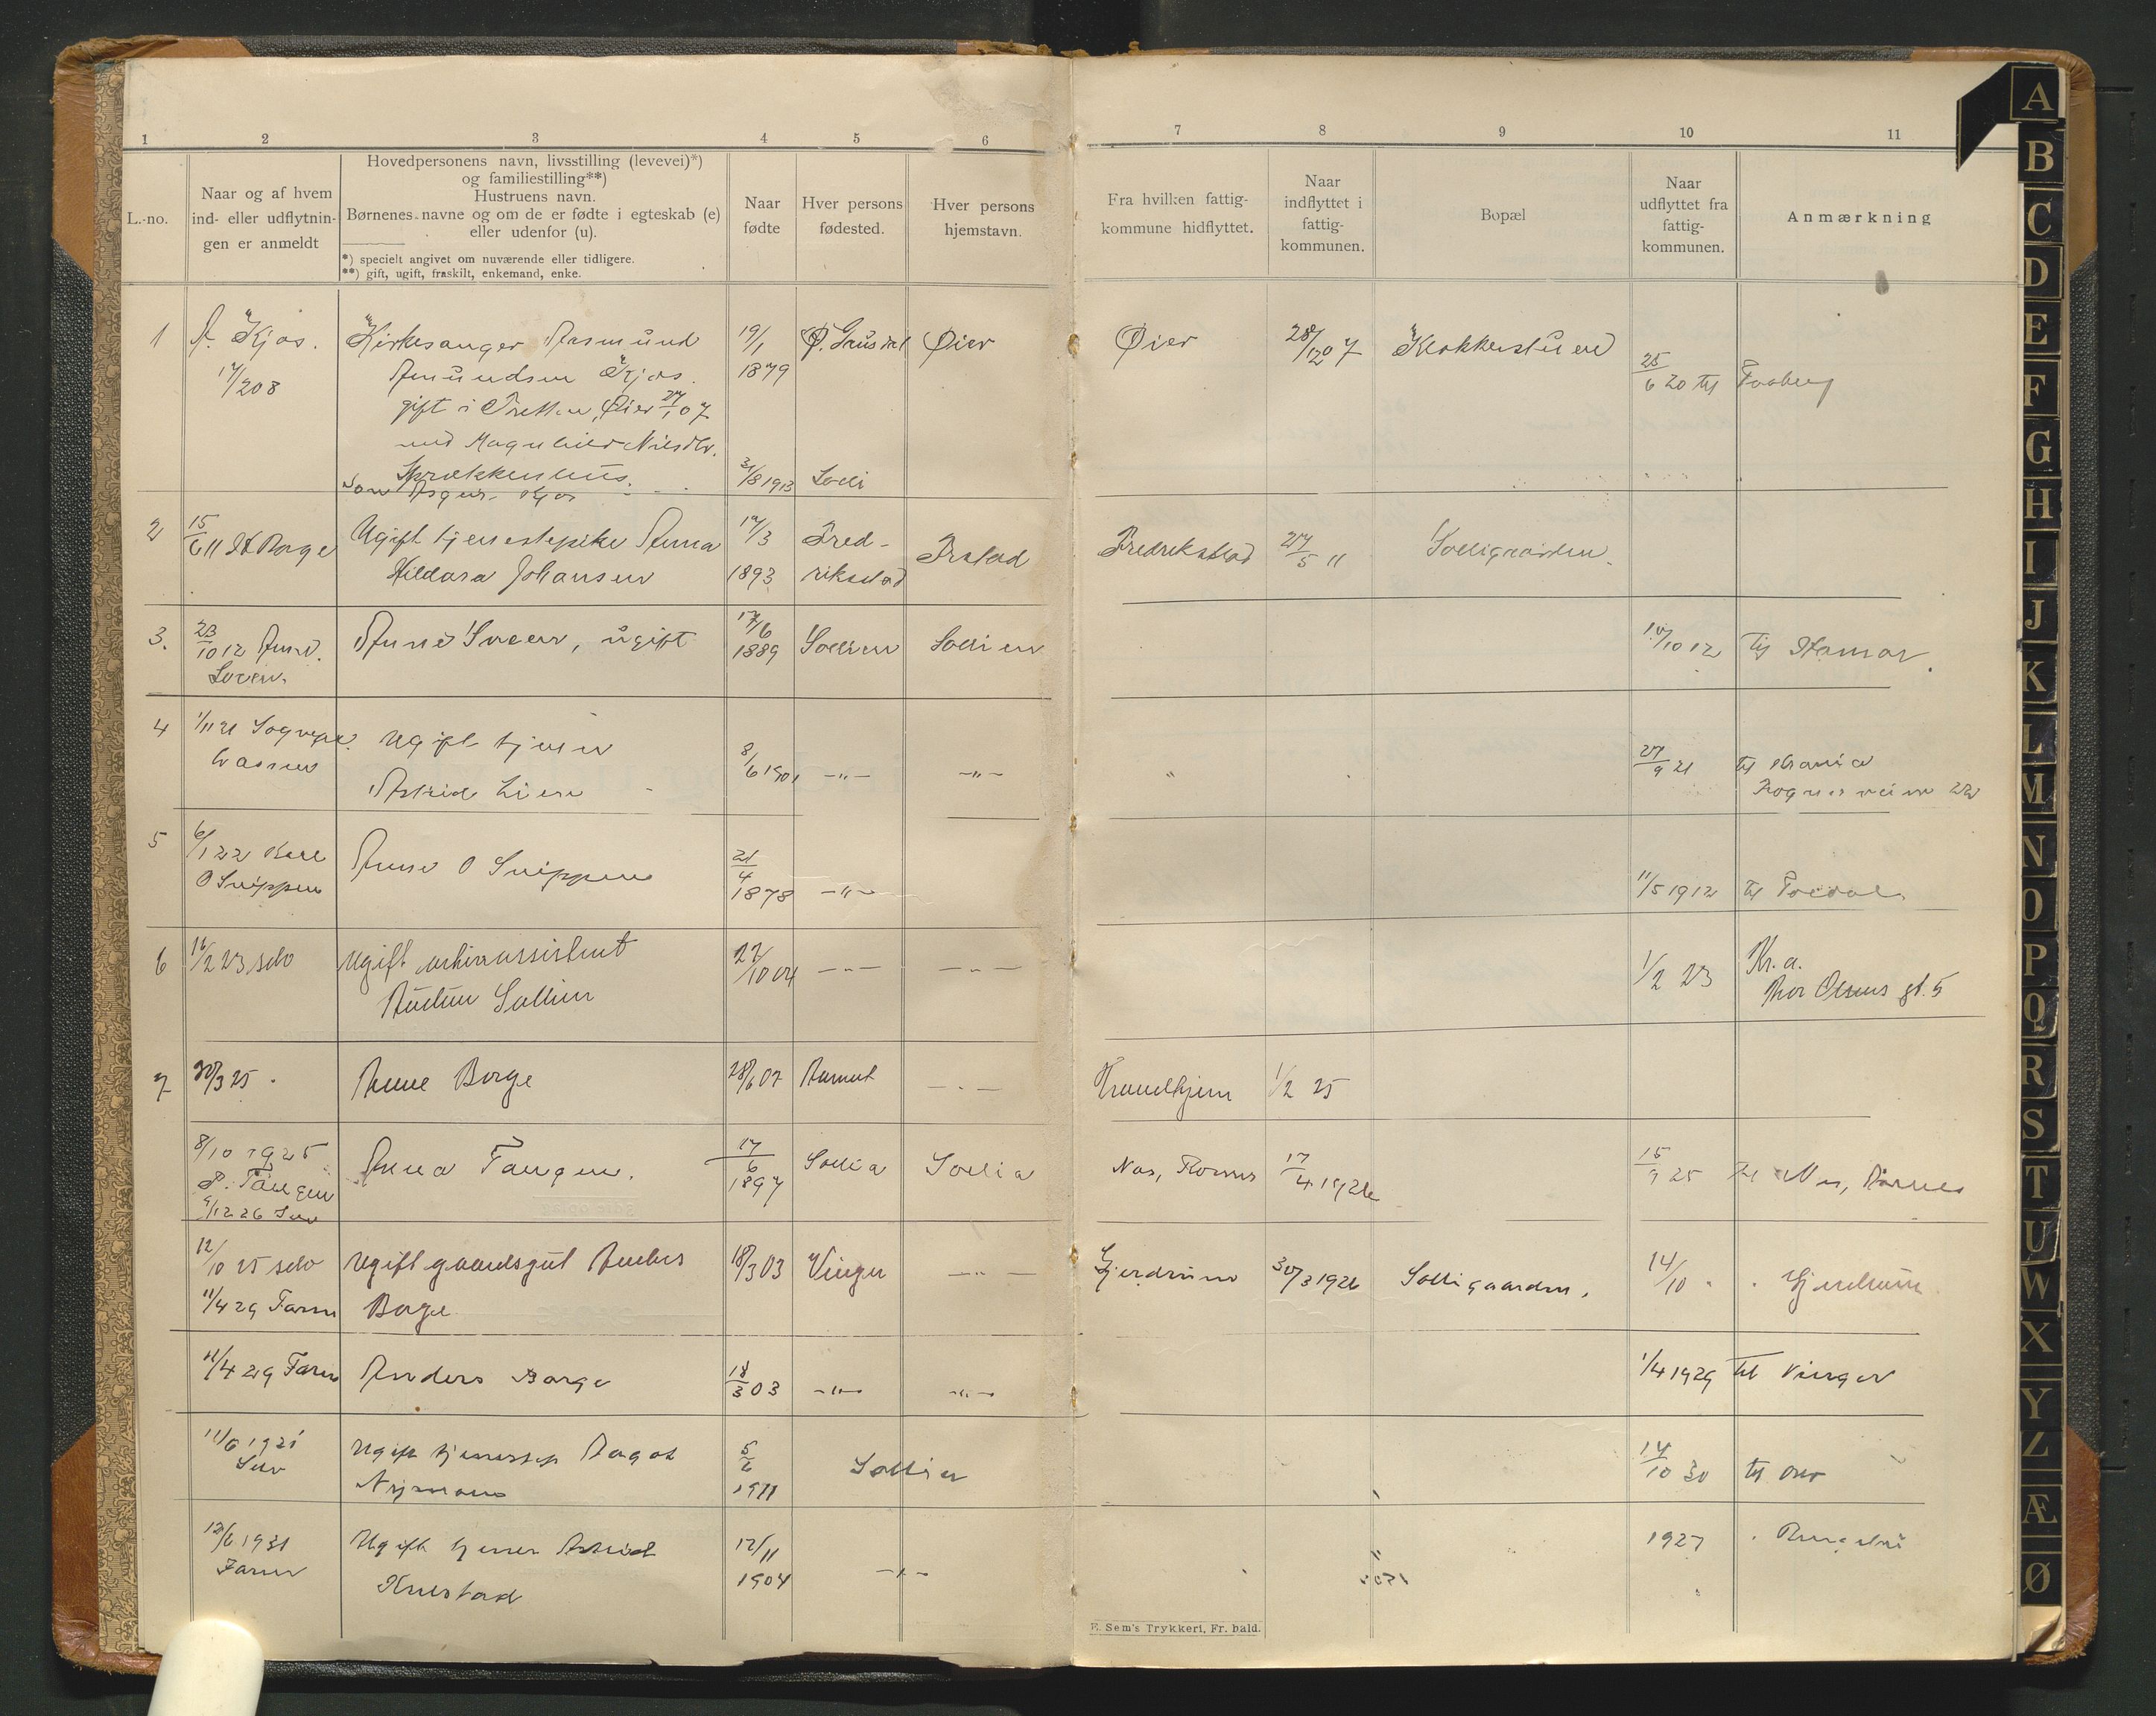 1 2 3 4 5 6 7 8 9 10 11
L.-no.
Naar og af hvem
ind- eller udflytnin-
gen er anmeldt
Hovedpersonens navn, livsstilling (levevei)*)
og familiestilling**)
Hustruens navn.
Børnenes navne og om de er fødte i egteskab (e)
eller udenfor (u).
*) specielt angivet om nuværende eller tidligere.
**) gift, ugift, fraskilt, enkemand, enke.
Naar
fødte
Hver persons
fødested.
Hver persons
hjemstavn.
Fra hvilken fattig-
kommune hidflyttet.
Naar
indflyttet i
fattig-
kommunen.
Bopæl
Naar
udflyttet fra
fattig-
kommunen.
Anmærkning
1 A. Kjos. Kirkesanger Aasmund 19/1 Ø. Gausdal Øier Øier 28/12 07 Klokkerstuen
17/2 08 Amundsen Kjos. 1879 25/6 20 til Faaberg
gift i Tretten, Øier 07
med Magnhild Nilsdtr.
Sprækkenhus.
Søn Asgeir Kjos 31/8 1913 Solli
2 15/6 11 H Borge Ugift tjenestepike Anna 17/3 Fred- Fredrikstad 27/5 11 Solligaarden.
Hildara Johansen 1893 rikstad
3. 23/10 12 17/6 Sollien Sollien 10/10 12 til Hamar.
ugift 1889
4 1/11 21 Ugift tjener 8/6 1901 -"- -"- " 27/9 21 til Krania
Astrid Lien Frognerveien 22
5 6/1 22 21/4 -"- 11/5 1912 til
O Snippen Anne O Snippen 1878
6 16/2 23 selv Ugift 27/10 04 -"- -"- 1/2 23 Kr.a.
Audun Sollien Thor Olsens gt. 5
7 20/3 25. Anne Borge 28/6 07 -"- Trondhjem 1/2 25
8/10 1925 Anna Tangen. 17/6 Sollia Sollia Nes, Romer 17/4 1926 15/9 25 til Nes, Aarnes
P. Tangen 1897
9/12 26
12/10 25 selv Ugift gaardsgut Anders 18/3 03 Vinger -"- Gjerdrum 30/3 1926 Solligaarden. 14/10 " " Gjerdrum
11/4 29 Faren Borge
11/4 29 Faren Anders Borge 18/3 03 -"- -"- 1/4 1929 til Vinger
Selv Ugift Dagot 5/2 Sollien 14/10 30 til Oslo
1911
1931 Ugift tjener Astrid 12/11 -"- 1927
Faren 1904
E. Sem's Trykkeri, Fr. hald.
A
B
C
D
E
F
G
H
I
J
K
L
M
N
O
P
Q
R
S
T
U
W
X
Y
Z
Æ
Ø